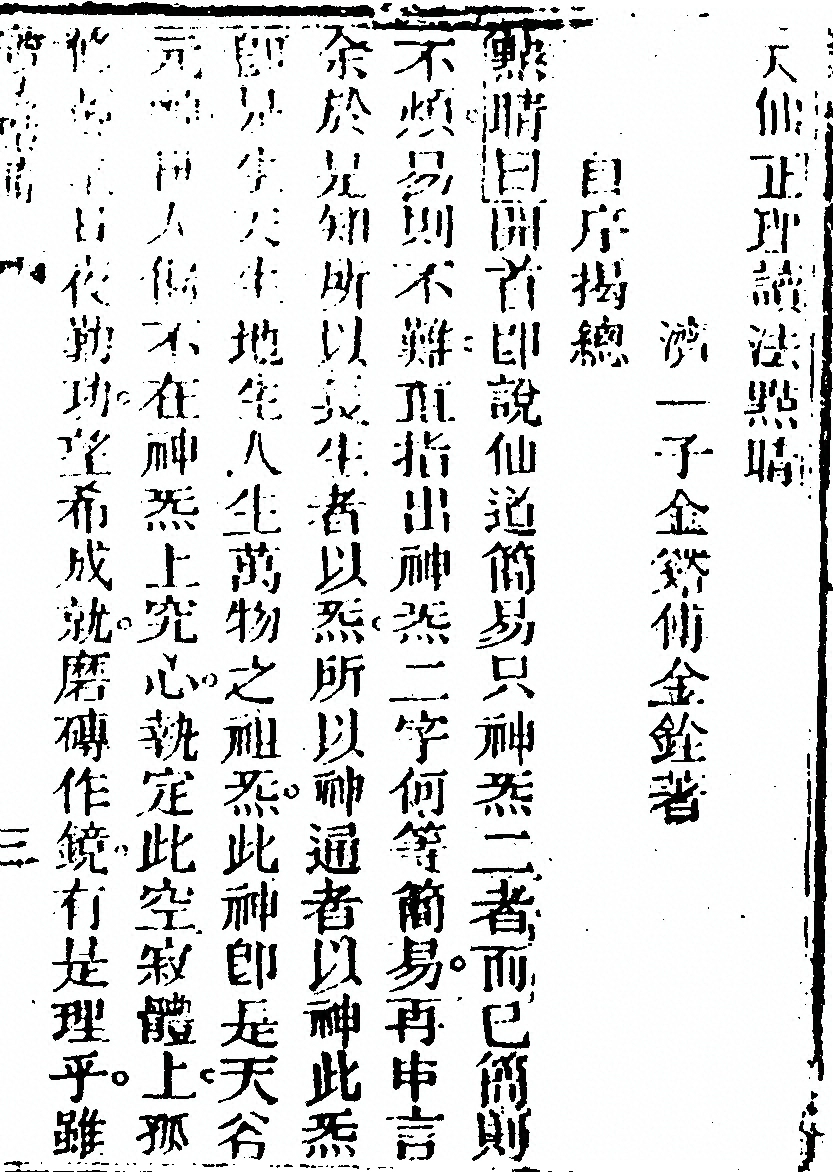 天仙正理讀法點睛
濟一子金谿傅金銓著
自序揭總
點睛曰開首即說仙道簡易只神炁二者而已簡則
不煩。易則不難。直指出神炁二字何等簡易。再申言
余於是知所以長生者以炁。所以神通者以神此炁
即是生天生地生人生萬物之祖炁。此神即是天谷
元神。世人倘不在神炁上究心。執定此空寂體上。孤
修。日夜勤功。望希成就。磨磚作鏡。有是理乎。雖
三